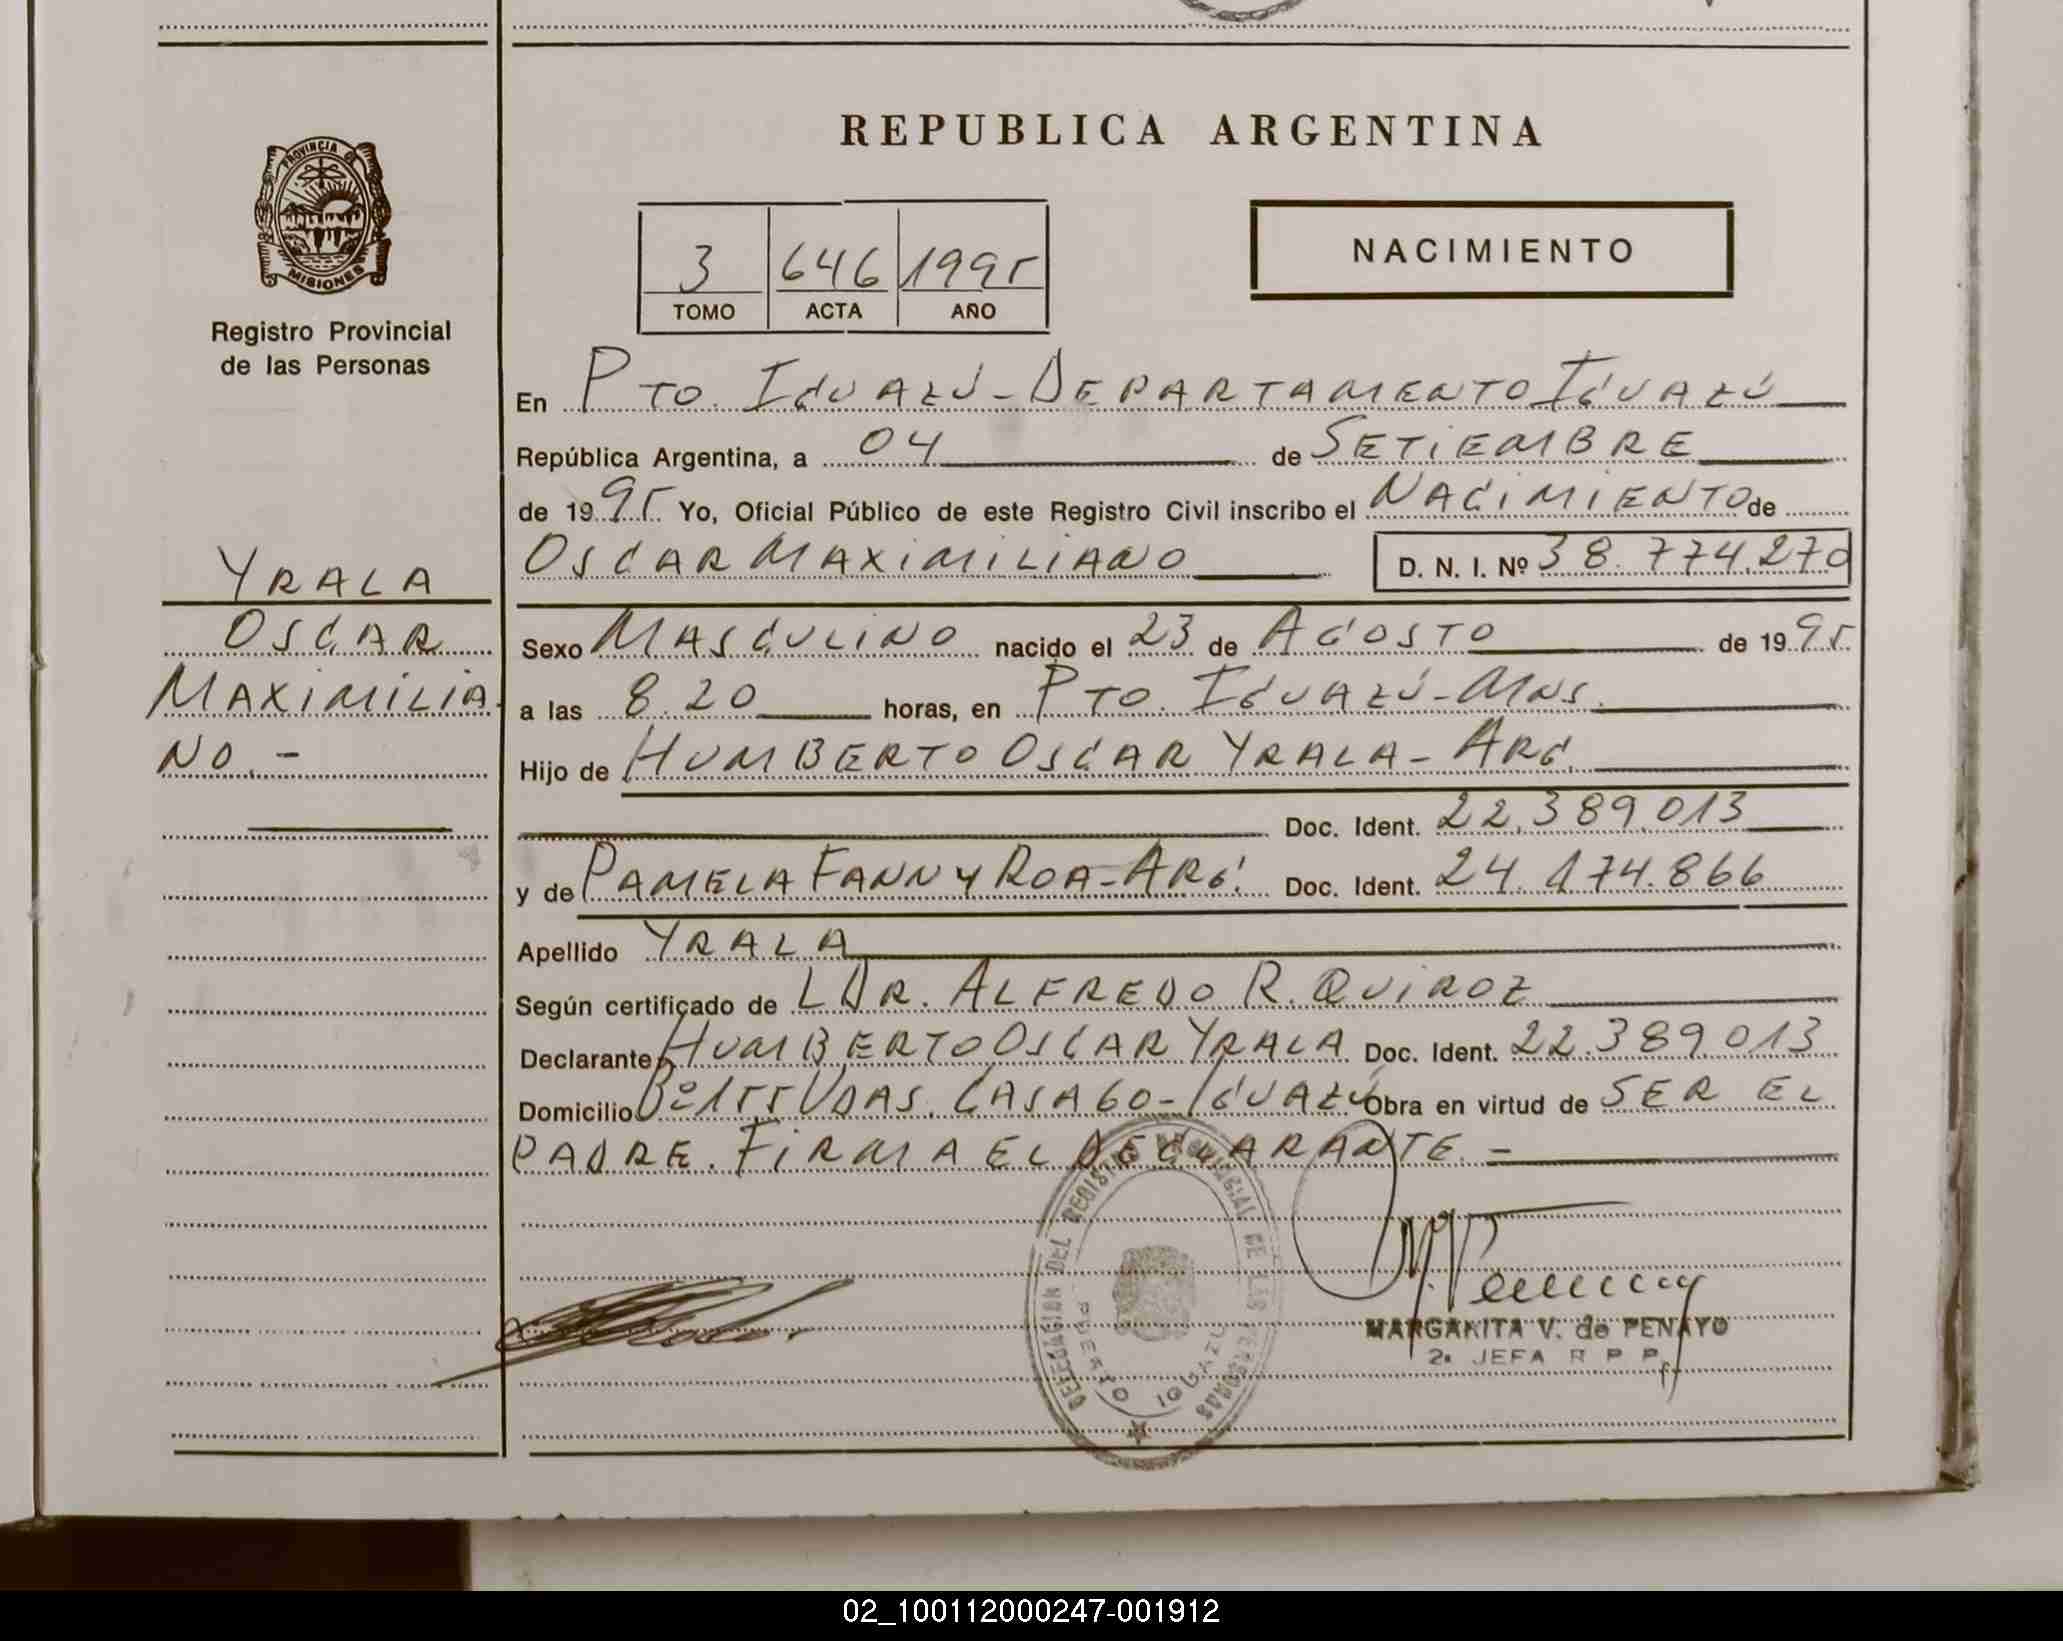 REPUBLICA ARGENTINA
PROVINCIA DE
MISIONES
Registro Provincial
de las Personas
3 646 1995
TOMO ACTA AÑO
NACIMIENTO
En PTO. IGUAZÚ - DEPARTAMENTO IGUAZÚ
República Argentina, a 04 de SETIEMBRE
de 1995 Yo, Oficial Público de este Registro Civil inscribo el NACIMIENTO de
OSCAR MAXIMILIANO D. N. I. Nº 38.774.270
YRALA
OSCAR
MAXIMILIA-
NO.-
Sexo MASCULINO nacido el 23 de AGOSTO de 1995
a las 8.20 horas, en PTO. IGUAZÚ - MNS.
Hijo de HUMBERTO OSCAR YRALA - ARG.
Doc. Ident. 22.389.013
y de PAMELA FANNY ROA - ARG. Doc. Ident. 24.174.866
Apellido YRALA
Según certificado de L DR. ALFREDO R. QUIROZ
Declarante HUMBERTO OSCAR YRALA Doc. Ident. 22.389.013
Domicilio Bº 155 VDAS. CASA 60 - IGUAZÚ Obra en virtud de SER EL
PADRE. FIRMA EL DECLARANTE.-
DELEGACION DEL REGISTRO PROVINCIAL DE LAS PERSONAS
PUERTO IGUAZU
MARGARITA V. de PENAYO
2a JEFA R P P
02_100112000247-001912